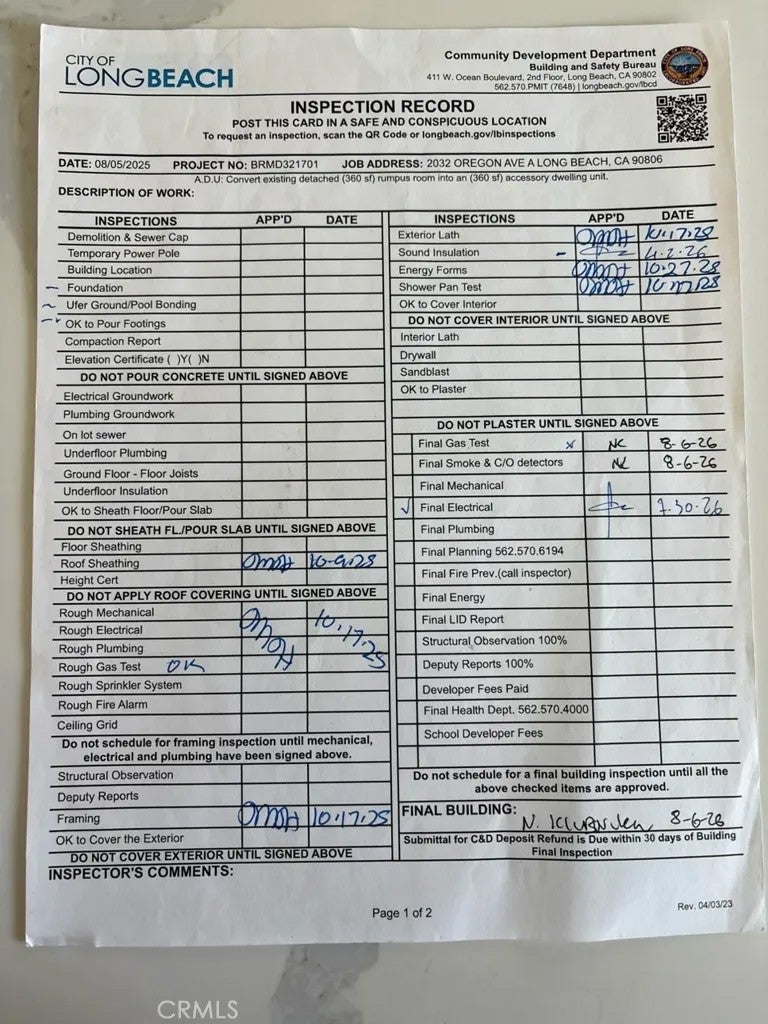 CITY OF
LONGBEACH
Community Development Department
Building and Safety Bureau
411 W. Ocean Boulevard, 2nd Floor, Long Beach, CA 90802
562.570.PMIT (7648) | longbeach.gov/lbcd
INSPECTION RECORD
POST THIS CARD IN A SAFE AND CONSPICUOUS LOCATION
To request an inspection, scan the QR Code or longbeach.gov/lbinspections
DATE: 08/05/2025 PROJECT NO: BRMD321701 JOB ADDRESS: 2032 OREGON AVE A LONG BEACH, CA 90806
A.D.U: Convert existing detached (360 sf) rumpus room into an (360 sf) accessory dwelling unit.
DESCRIPTION OF WORK:
INSPECTIONS APP'D DATE
Demolition & Sewer Cap
Temporary Power Pole
Building Location
Foundation
Ufer Ground/Pool Bonding
OK to Pour Footings
Compaction Report
Elevation Certificate ( )Y( )N
DO NOT POUR CONCRETE UNTIL SIGNED ABOVE
Electrical Groundwork
Plumbing Groundwork
On lot sewer
Underfloor Plumbing
Ground Floor - Floor Joists
Underfloor Insulation
OK to Sheath Floor/Pour Slab
DO NOT SHEATH FL./POUR SLAB UNTIL SIGNED ABOVE
Floor Sheathing
Roof Sheathing
Height Cert
DO NOT APPLY ROOF COVERING UNTIL SIGNED ABOVE
Rough Mechanical
Rough Electrical 10.17.25
Rough Plumbing
Rough Gas Test OK
Rough Sprinkler System
Rough Fire Alarm
Ceiling Grid
Do not schedule for framing inspection until mechanical,
electrical and plumbing have been signed above.
Structural Observation
Deputy Reports
Framing 10.17.25
OK to Cover the Exterior
DO NOT COVER EXTERIOR UNTIL SIGNED ABOVE
INSPECTOR'S COMMENTS:
INSPECTIONS APP'D DATE
Exterior Lath
Sound Insulation 4.2.26
Energy Forms
Shower Pan Test
OK to Cover Interior
DO NOT COVER INTERIOR UNTIL SIGNED ABOVE
Interior Lath
Drywall
Sandblast
OK to Plaster
DO NOT PLASTER UNTIL SIGNED ABOVE
Final Gas Test x NC 8-6-26
Final Smoke & C/O detectors NC 8-6-26
Final Mechanical
Final Electrical 7.30.26
Final Plumbing
Final Planning 562.570.6194
Final Fire Prev.(call inspector)
Final Energy
Final LID Report
Structural Observation 100%
Deputy Reports 100%
Developer Fees Paid
Final Health Dept. 562.570.4000
School Developer Fees
Do not schedule for a final building inspection until all the
above checked items are approved.
FINAL BUILDING: 8-6-26
Submittal for C&D Deposit Refund is Due within 30 days of Building
Final Inspection
Page 1 of 2
Rev. 04/03/23
CRMLS